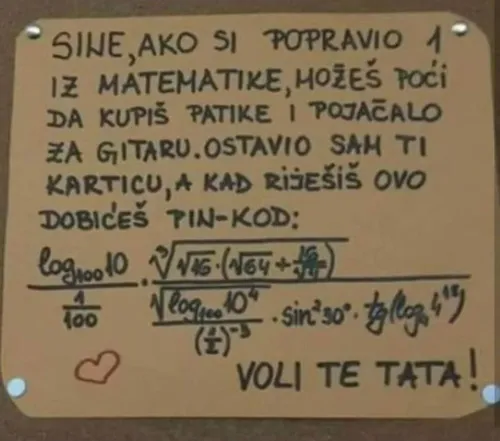 SINE, AKO SI POPRAVIO 1
IZ MATEMATIKE, MOŽEŠ POĆI
DA KUPIŠ PATIKE I POJAČALO
ZA GITARU. OSTAVIO SAM TI
KARTICU, A KAD RIJEŠIŠ OVO
DOBIĆEŠ PIN-KOD:
log₁₀₀10 / (1/100) · √(√16·(√64+
√(log₁₀₀10⁴) / (1/2)⁻³ · sin²30° · tg(log 4
VOLI TE TATA!